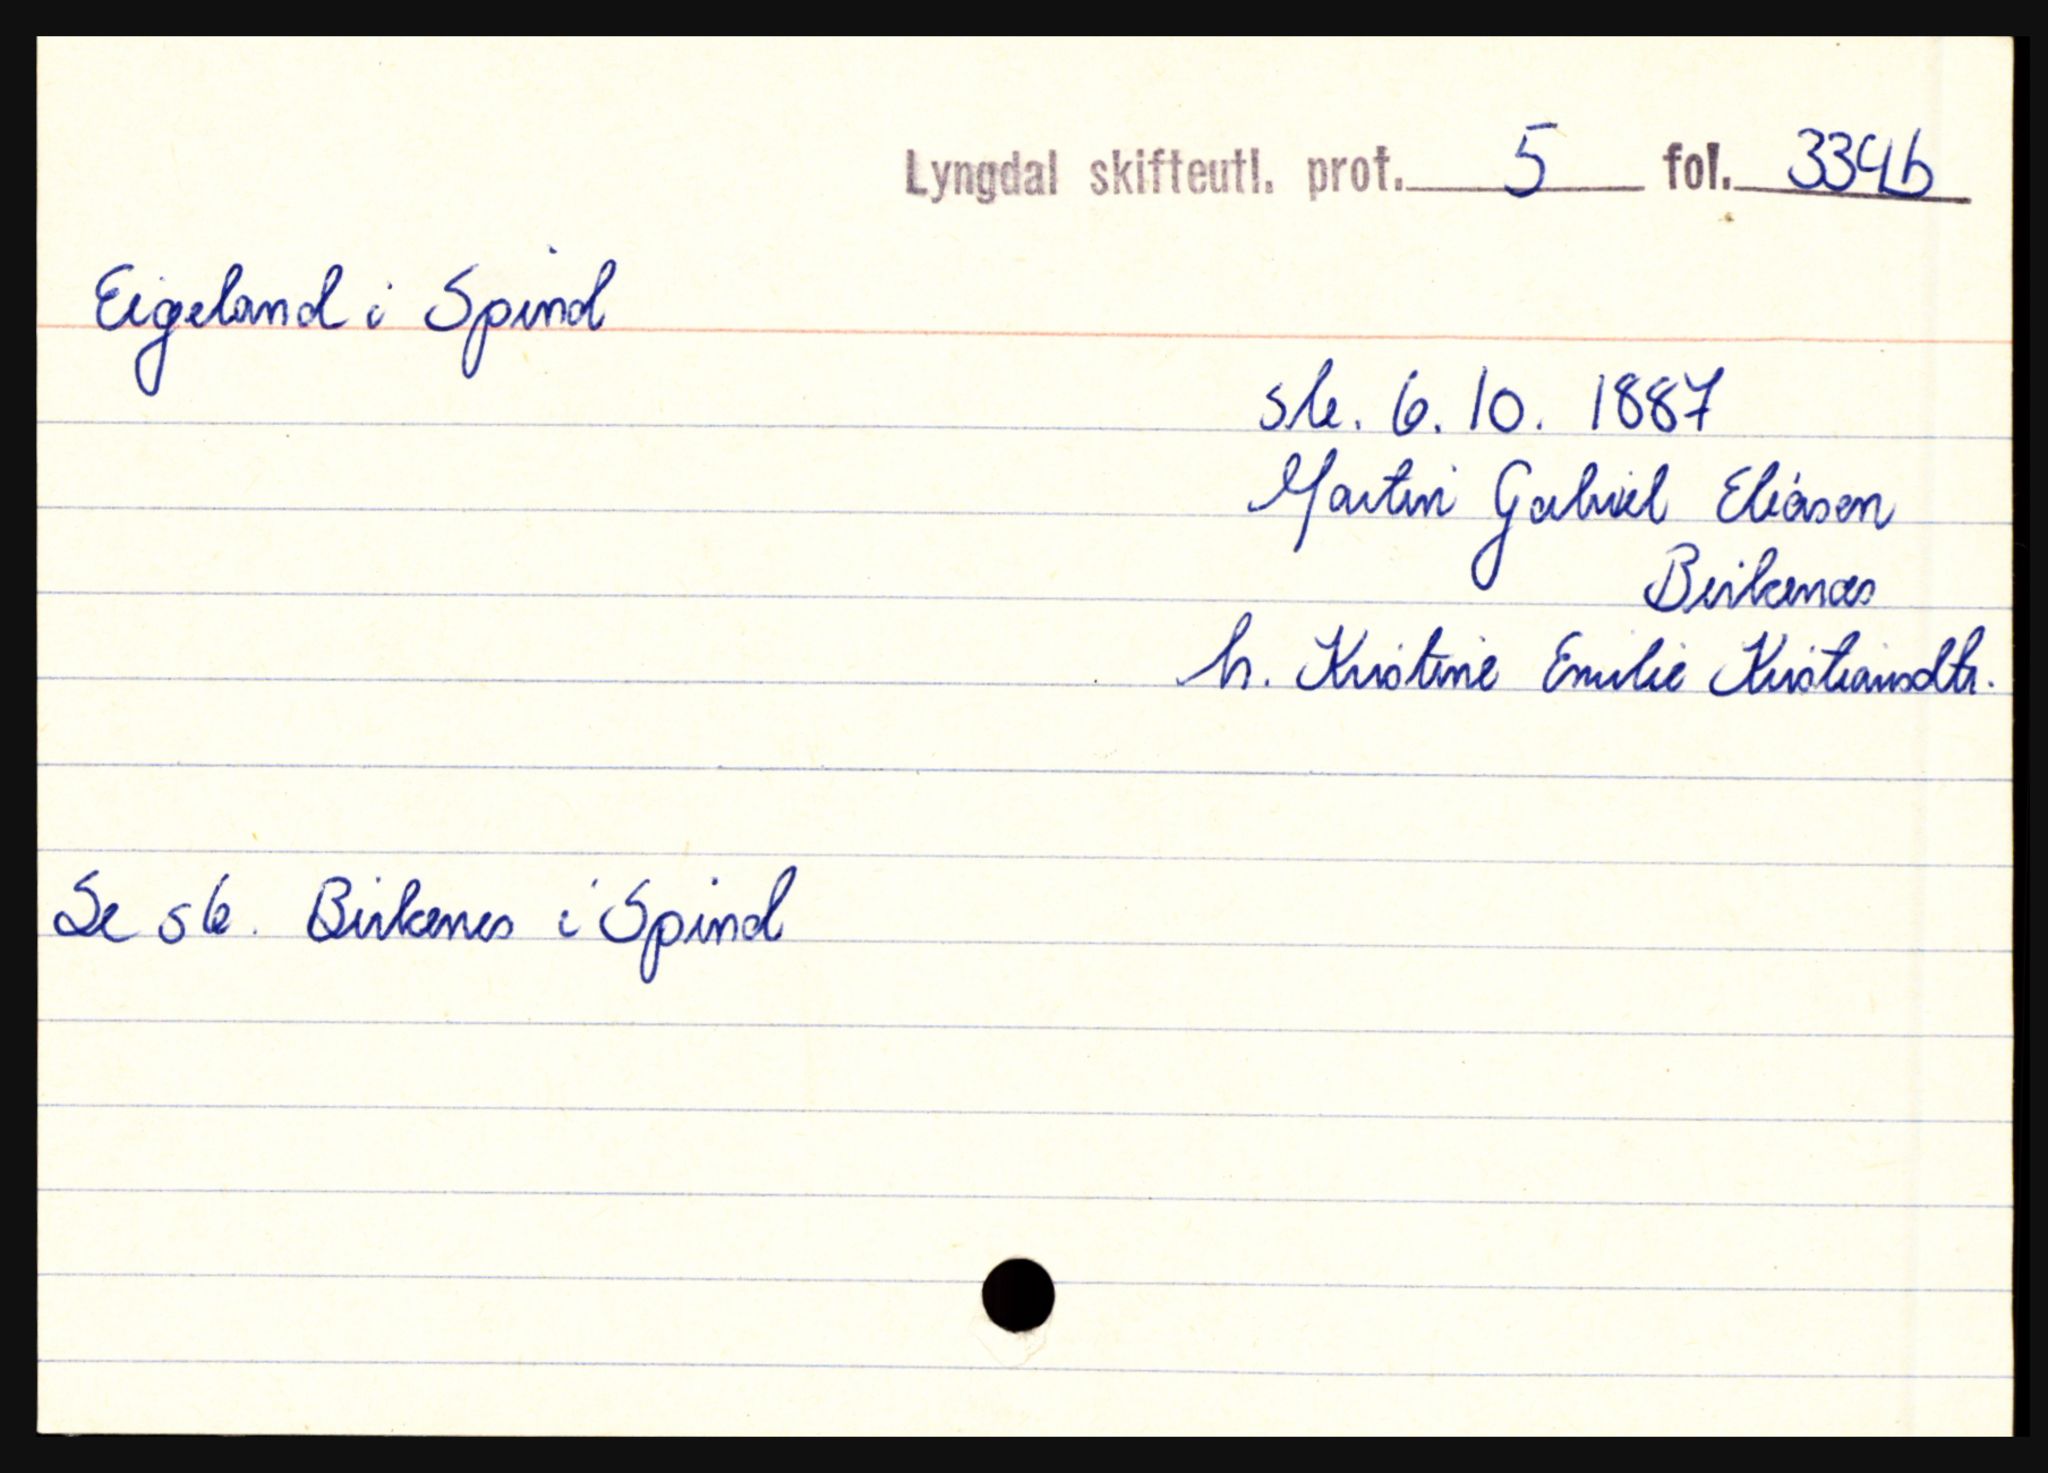 Lyngdal skifteutl. prot. 5 fol. 334b
Eigeland i Spind
sk. 6.10. 1887
Martin Gabriel Eliasen
Birkenes
h. Kristine Emilie Kristiansdtr.
Se sk. Birkenes i Spind